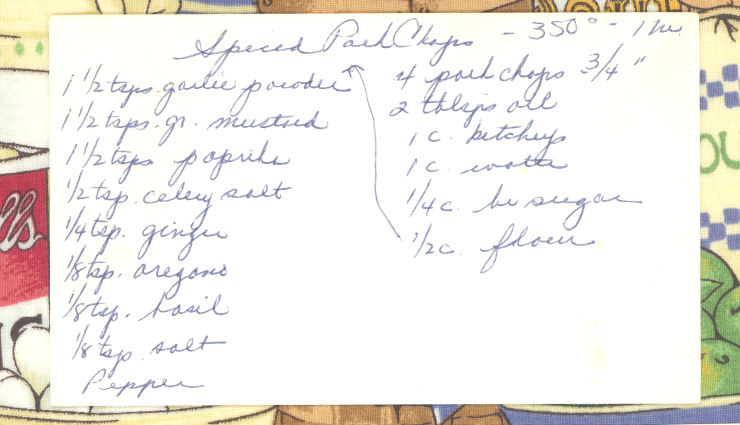 Spiced Pork Chops - 350° - 1 hr.
1 1/2 tsps. garlic powder
1 1/2 tsps. gr. mustard
1 1/2 tsps paprika
1/2 tsp. celery salt
1/4 tsp. ginger
1/8 tsp. oregano
1/8 tsp. basil
1/8 tsp. salt
Pepper
4 pork chops 3/4"
2 tblsps oil
1 c. ketchup
1 c. water
1/4 c. br sugar
1/2 c. flour